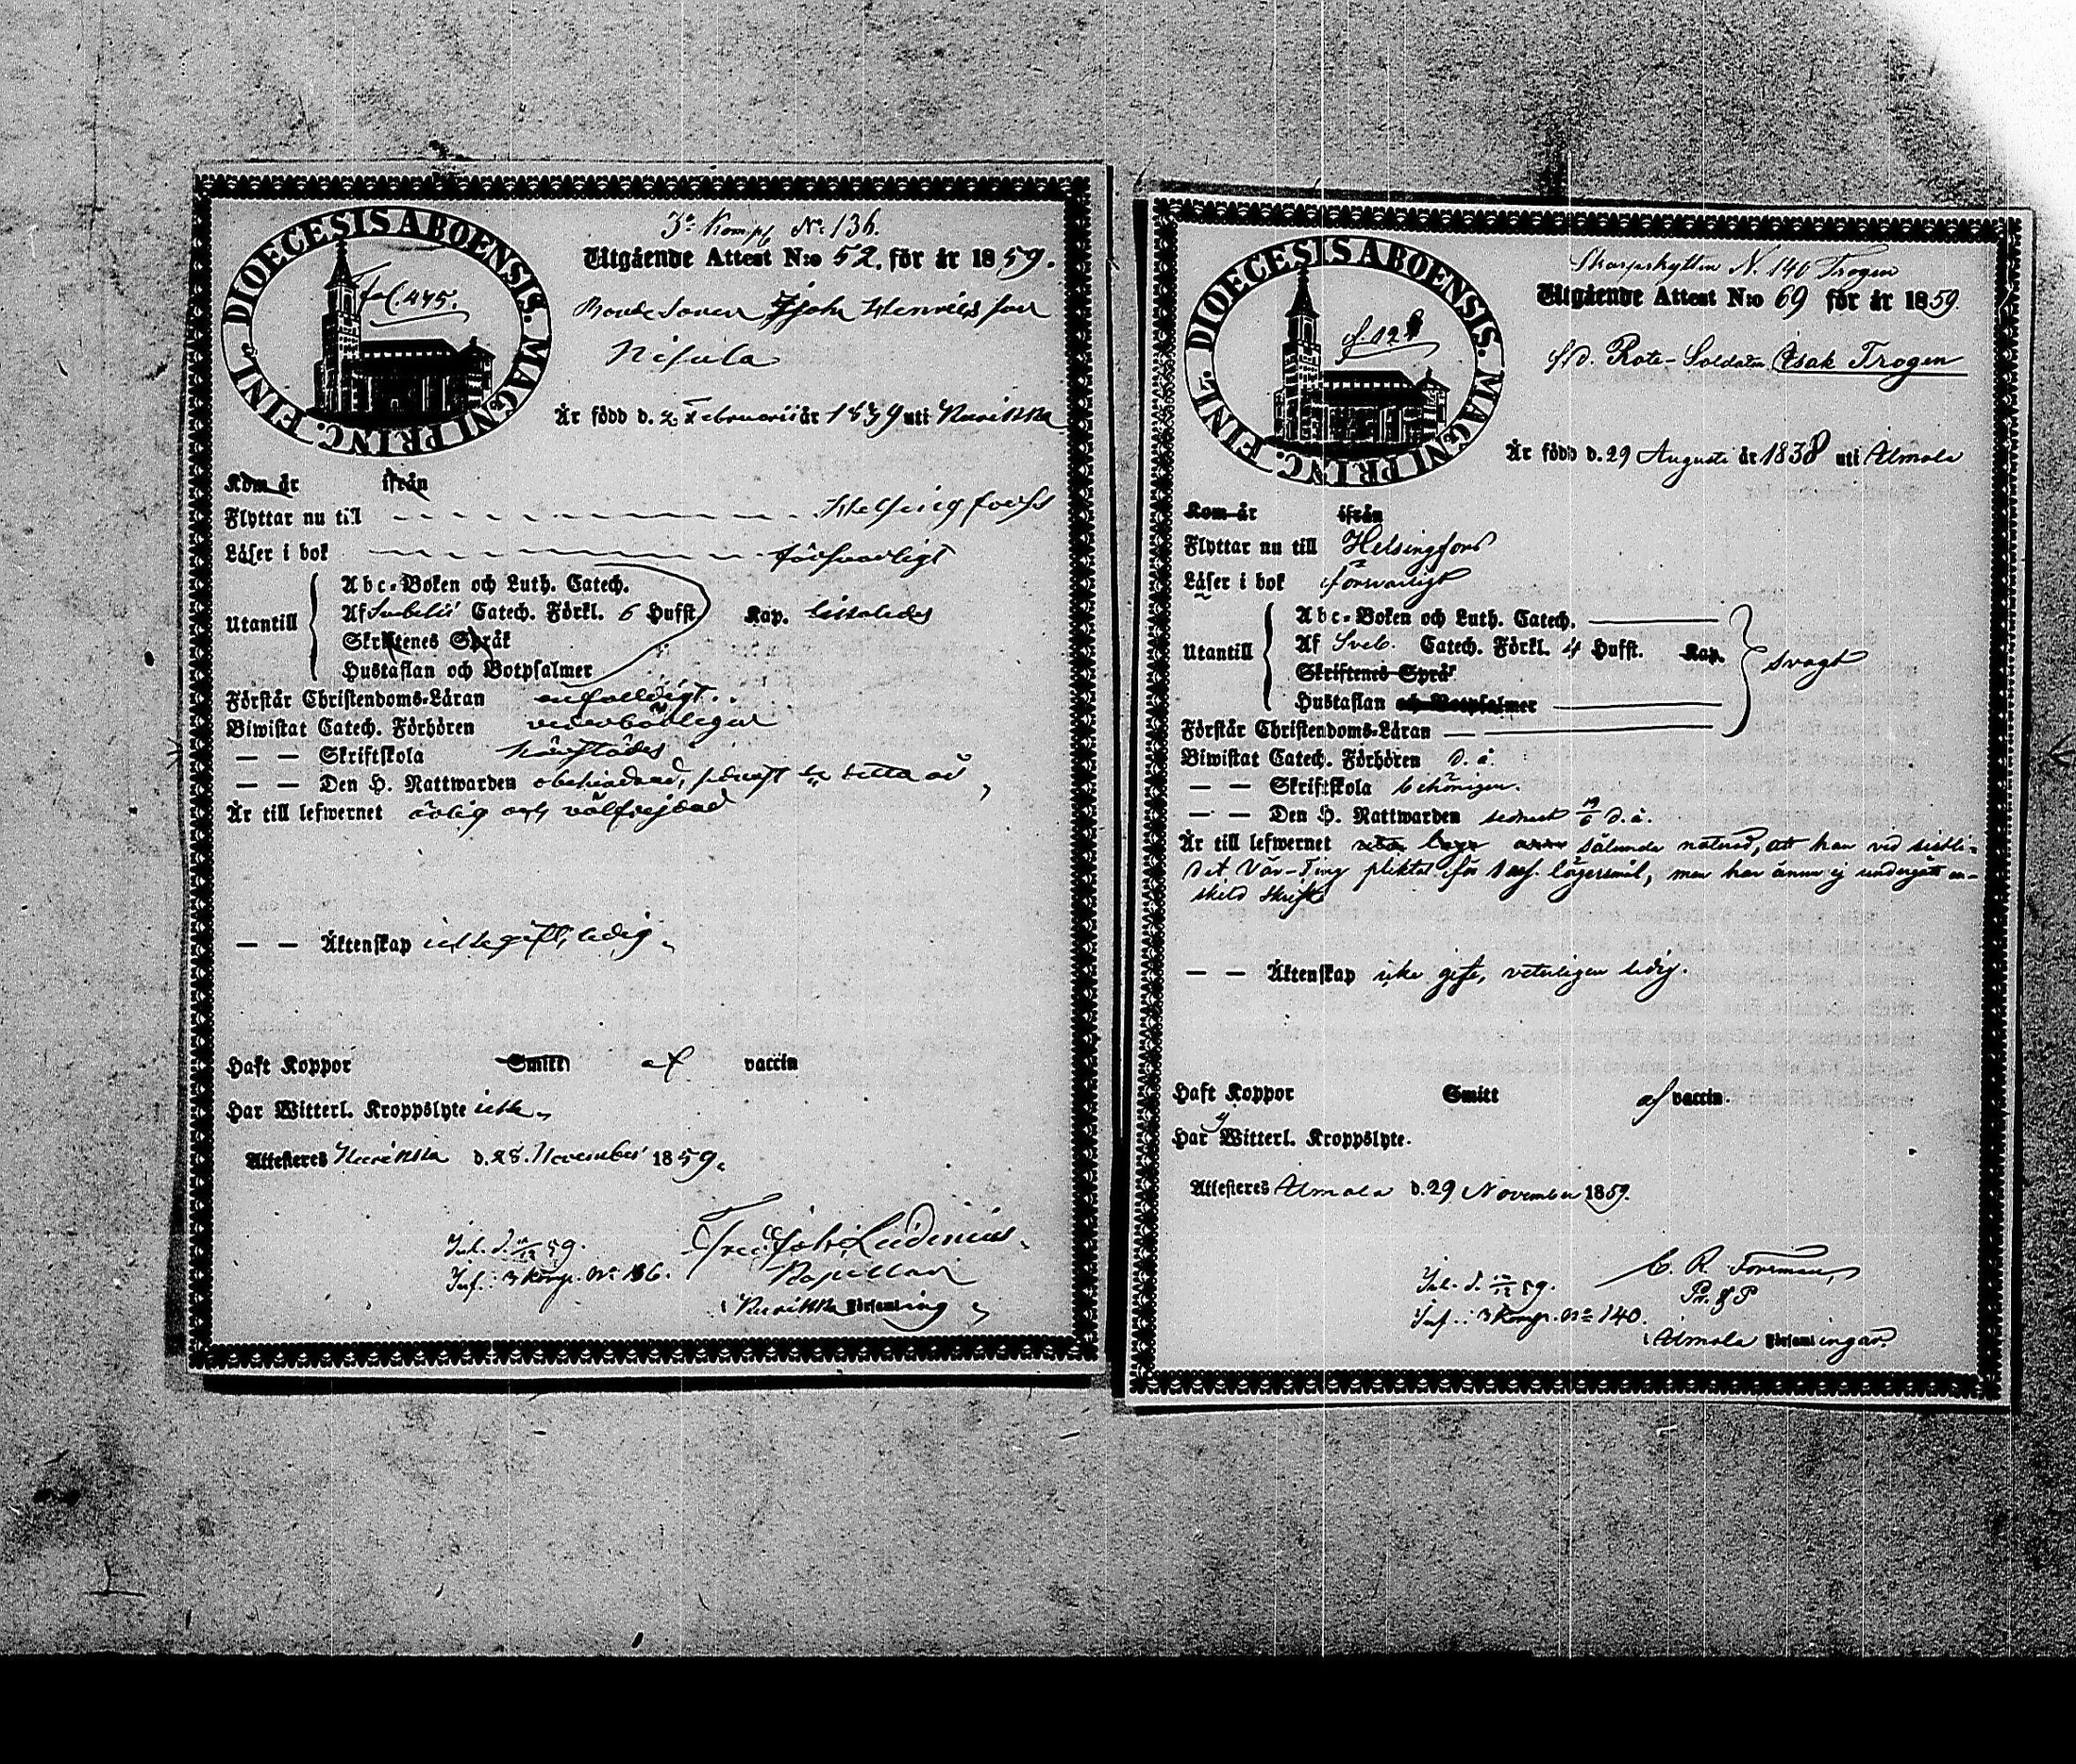 3e Komp. No 136.
DIOECESIS ABOENSIS. MAGNI PRINC. FINL.
Fol. 445.
Utgående Attest N:o 52. för år 1859.
Bondesonen Johan Henriksson
Nisula
Är född d. 2 Februarii år 1839 uti Kurikka
Kom år ifrån
Flyttar nu till Helsingfors
Läser i bok försvarligt
Abc-Boken och Luth. Catech.
Utantill Af Svebelii Catech. Förkl. 6 Hufst. Kap. likaledes
Skriftenes Språk
Hustaflan och Botpsalmer
Förstår Christendoms-Läran enfaldigt.
Biwistat Catech. Förhören vederbörligen
— — Skriftskola
— — Den H. Nattwarden obehindrad, senast i detta år,
Är till lefwernet ärlig och välfrejdad
— — Äktenskap icke gift, ledig.
Haft Koppor Smitt af vaccin
Har Witterl. Kroppslyte icke.
Attesteres Kurikka d. 28. November 1859.
Inl. d. 59.
Inf. 3 komp. No 136.
Kapellan
i Kurikka Församling
Skarpskytten N. 140 Trogen
DIOECESIS ABOENSIS. MAGNI PRINC. FINL.
Utgående Attest N:o 69 för år 1859.
f.d. Rote-Soldaten Isak Trogen
Är född d. 29 Augusti år 1838 uti Ilmola
Kom år ifrån
Flyttar nu till Helsingfors
Läser i bok försvarligt
Abc-Boken och Luth. Catech.
Utantill Af Sveb. Catech. Förkl. 4 Hufst. Kap. svagt
Skriftenes Språk
Hustaflan och Botpsalmer
Förstår Christendoms-Läran
Biwistat Catech. Förhören d. å.
— — Skriftskola behörigen.
— — Den H. Nattwarden sednast 19/6 d. å.
Är till lefwernet sålunda noterad, att han vid sistli-
det Vår-Ting pliktat för lägersmål, men har ännu ej undergått en-
skild skrift
— — Äktenskap icke gift, veterligen ledig.
Haft Koppor Smitt af vaccin.
Har ej Witterl. Kroppslyte.
Attesteres Ilmola d. 29 November 1859.
Inl. d. 59.
Inf. 3 Komp. No 140.
C. R. Forsman,
Pr. & P
i Ilmola Församlingar.